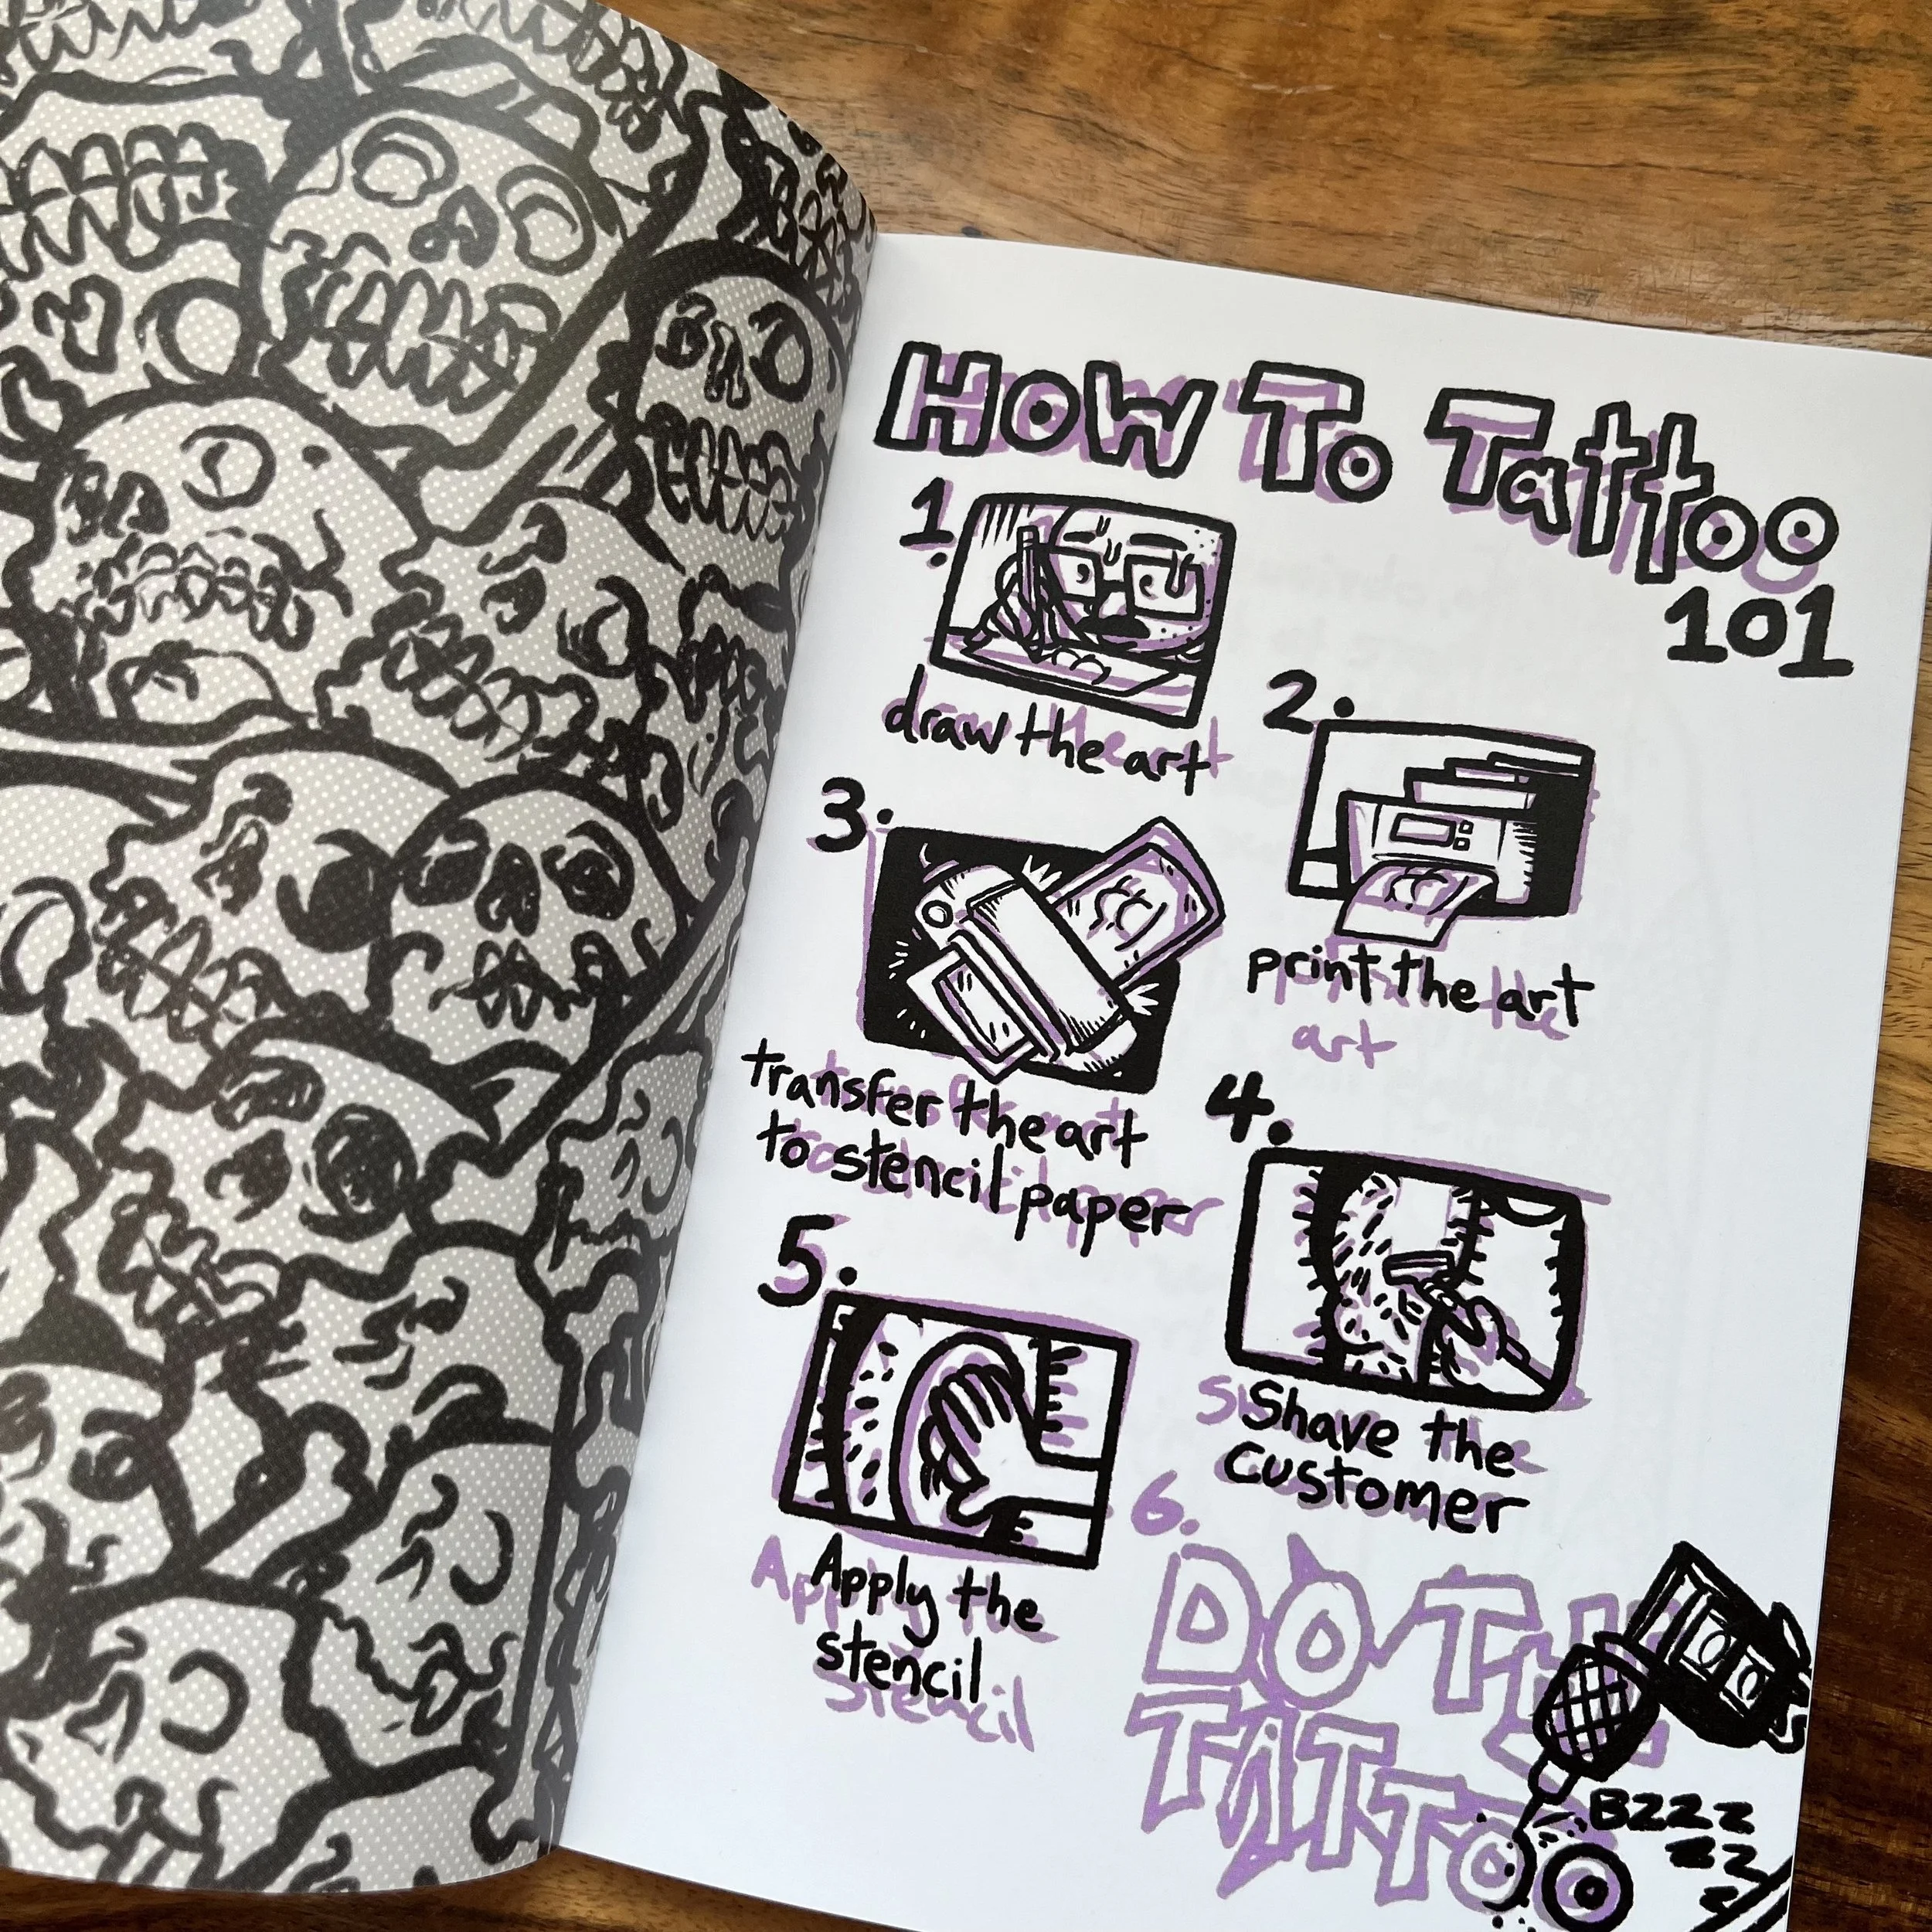 How To Tattoo
101
1.
draw the art
2.
print the art
art
3.
transfer the art
to stencil paper
4.
Shave the
customer
5.
Apply the
stencil
stencil
6.
DO THE
TATTOO
BZZZ
ZZ
Z